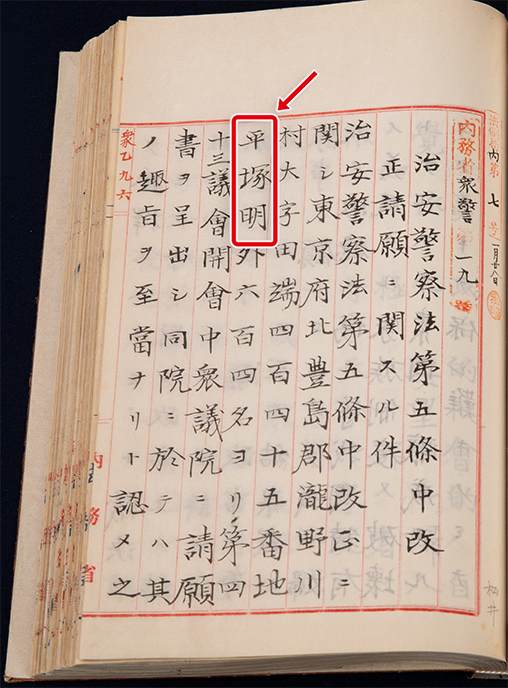 内第七号
内務省衆警第一九
治安警察法第五條中改
正請願ニ関スル件
治安警察法第五條中改正ニ
関シ東京府北豊島郡瀧野川
村大字田端四百四十五番地
平塚明外六百四名ヨリ第四
十三議會開會中衆議院ニ請願
書ヲ呈出シ同院ニ於テハ其
ノ趣旨ヲ至當ナリト認メ之
衆乙九六
内務省